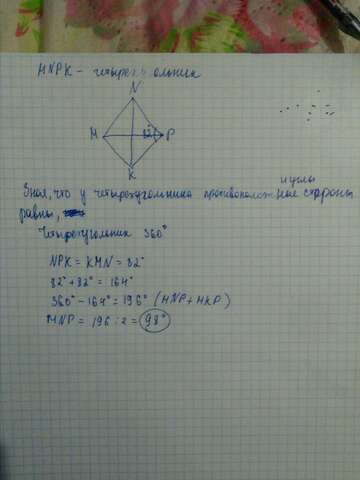 MNPK - четырехугольник
N
M 82° P
K
и углы
Зная, что у четырехугольника противоположные стороны
равны,
Четырехугольник 360°
NPK = KMN = 82°
82° + 82° = 164°
360° - 164° = 196° (MNP + MKP)
MNP = 196 : 2 = 98°